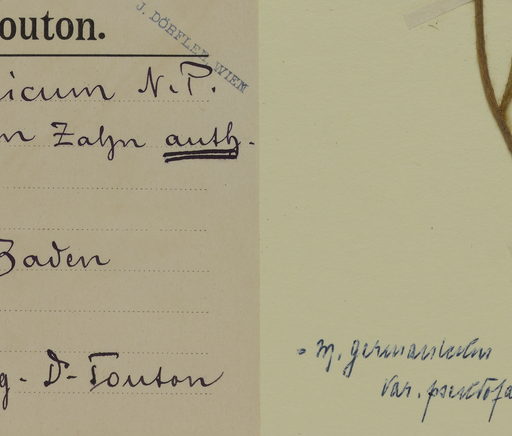 outon.
J. DÖRFLER, WIEN
icum N.P.
n Zahn auth.
Baden
g. Dr Touton
M. germanicum
var. pseudofa